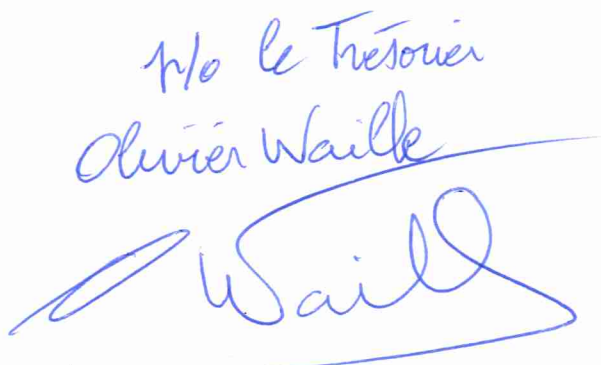 p/o le Trésorier
Olivier Waille
Waille